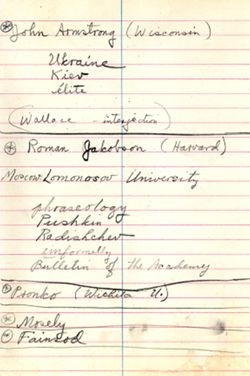 * John Armstrong (Wisconsin)
Ukraine
Kiev
élite
(Wallace - interjection)
* Roman Jakobson (Harvard)
Moscow Lomonosov University
phraseology
Pushkin
Radishchev
uniformally
Bulletin of the Academy
Pronko (Wichita U.)
* Mosely
Fainsod